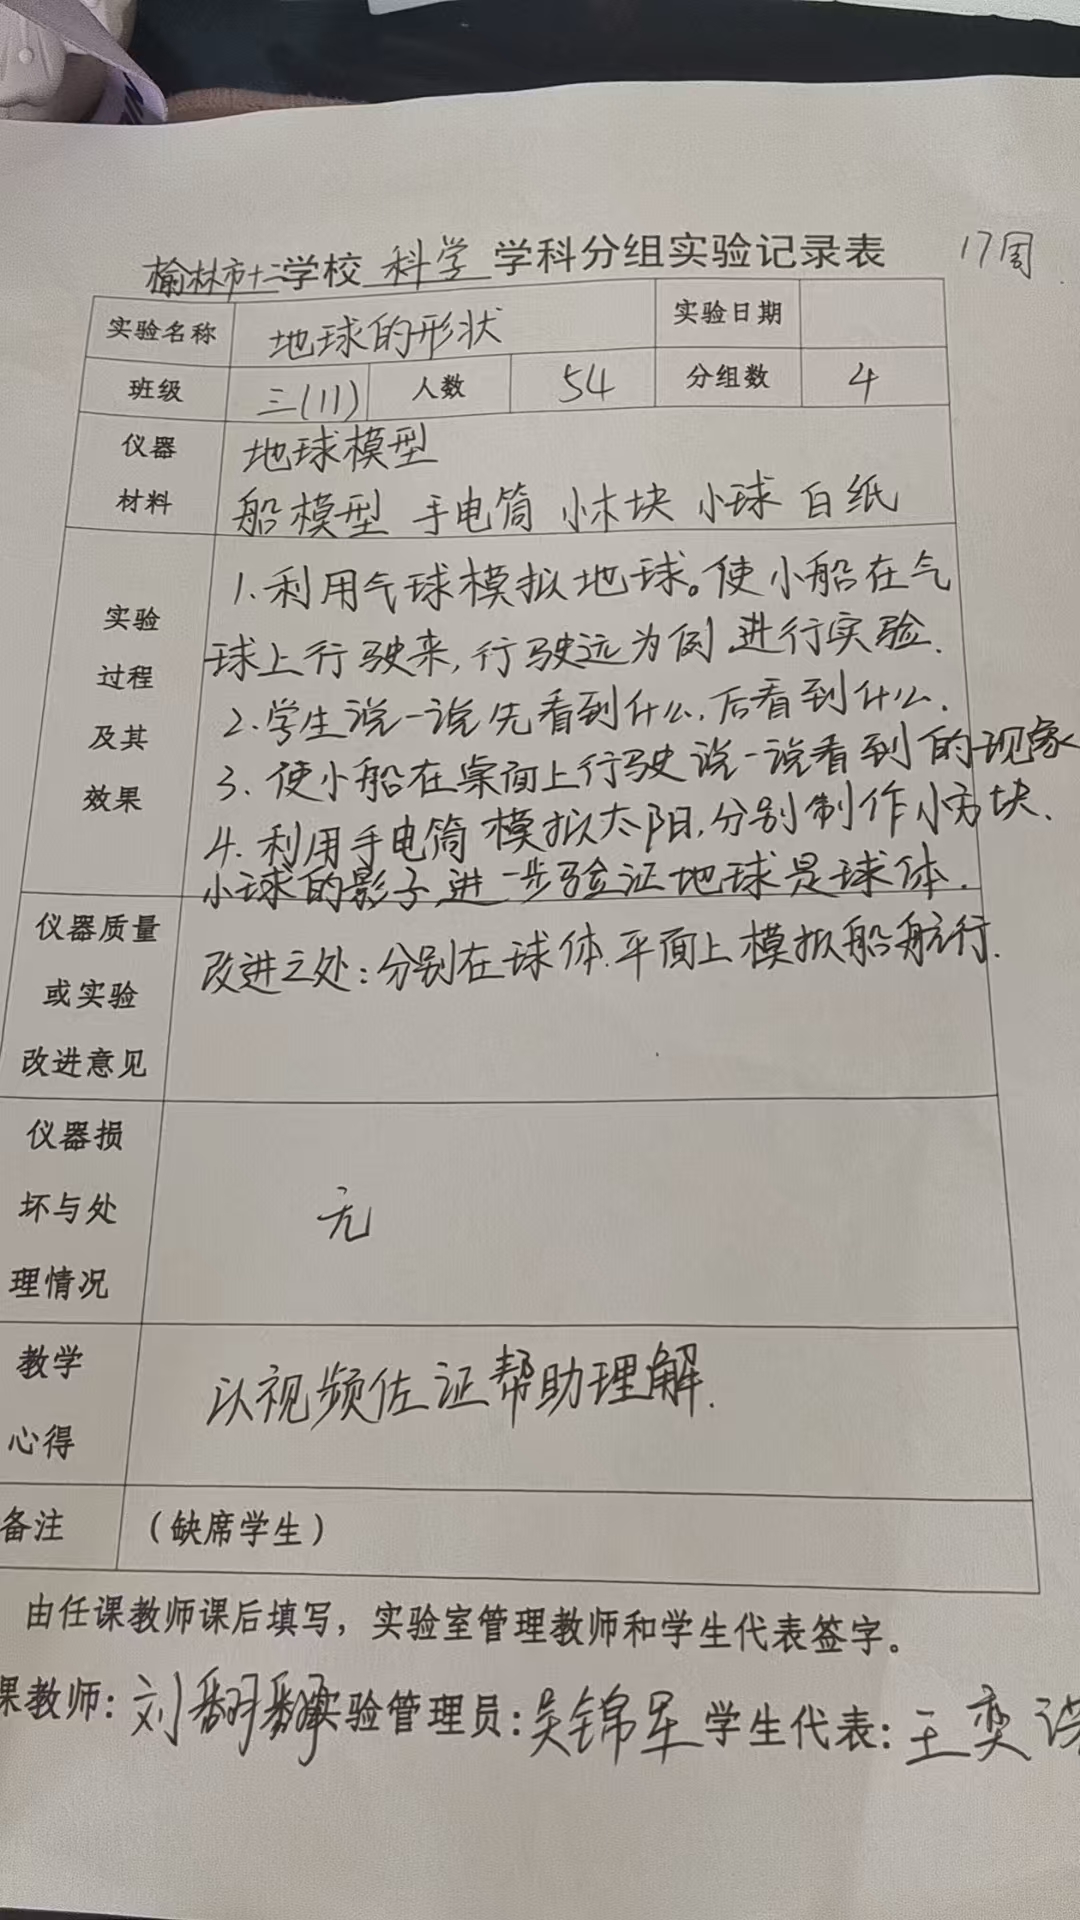 榆林市十二学校 科学 学科分组实验记录表 17周
实验名称 地球的形状 实验日期
班级 三(11) 人数 54 分组数 4
仪器 地球模型
材料 船模型 手电筒 小木块 小球 白纸
实验过程及其效果
1.利用气球模拟地球。使小船在气
球上行驶来,行驶远为例进行实验.
2.学生说一说先看到什么,后看到什么.
3.使小船在桌面上行驶说一说看到的现象
4.利用手电筒模拟太阳,分别制作小方块、
小球的影子进一步验证地球是球体.
仪器质量
或实验
改进意见
改进之处:分别在球体.平面上模拟船航行.
仪器损
坏与处
理情况
无
教学
心得
以视频佐证帮助理解.
备注 (缺席学生)
由任课教师课后填写,实验室管理教师和学生代表签字。
课教师:刘翻翻 实验管理员:吴锦军 学生代表:王奕